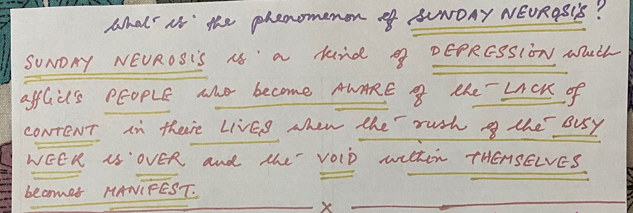 What is the phenomenon of SUNDAY NEUROSIS?
SUNDAY NEUROSIS is a kind of DEPRESSION which
afflicts PEOPLE who become AWARE of the LACK of
CONTENT in their LIVES when the rush of the BUSY
WEEK is OVER and the VOID within THEMSELVES
becomes MANIFEST.
x